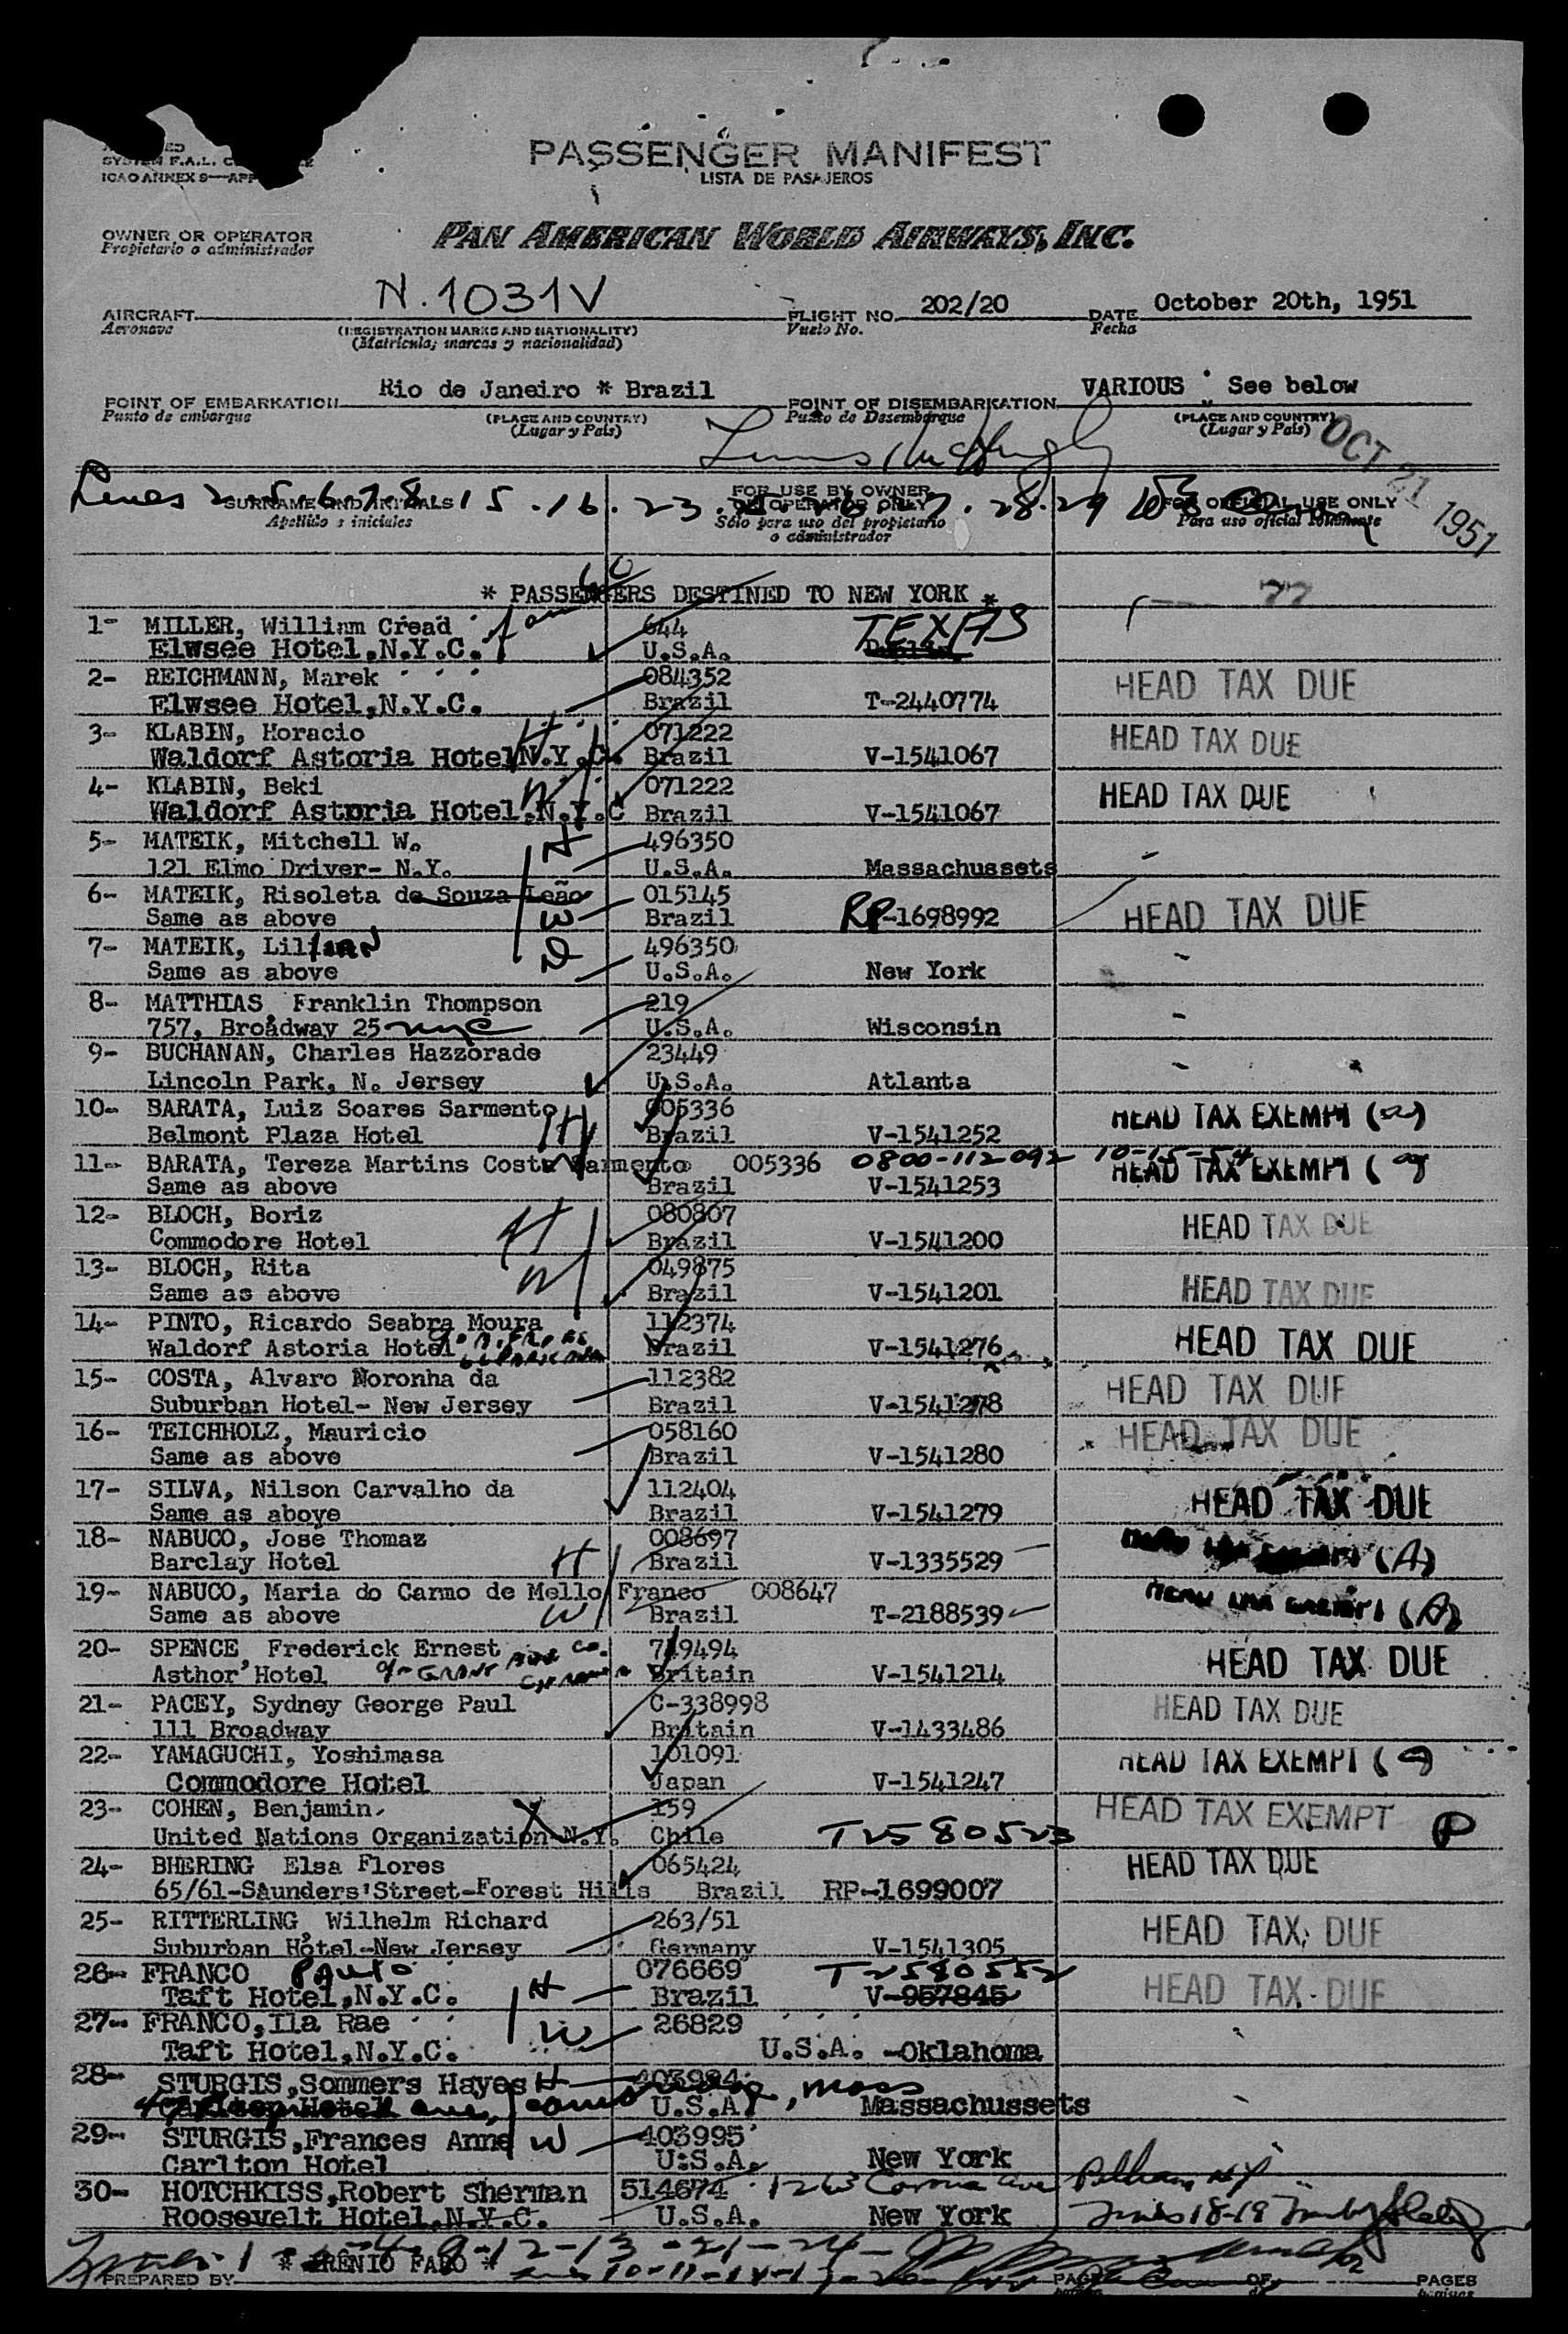 PASSENGER MANIFEST
LISTA DE PASAJEROS
SYSTEM F.A.L.
ICAO ANNEX 9
OWNER OR OPERATOR
Propietario o administrador
PAN AMERICAN WORLD AIRWAYS, INC.
AIRCRAFT N.1031V FLIGHT NO. 202/20 DATE October 20th, 1951
Aeronave (REGISTRATION MARKS AND NATIONALITY) Vuelo No. Fecha
(Matricula; marcas y nacionalidad)
POINT OF EMBARKATION Rio de Janeiro * Brazil POINT OF DISEMBARKATION VARIOUS : See below
Punto de embarque (PLACE AND COUNTRY) Punto de Desembarque (PLACE AND COUNTRY)
(Lugar y Pais) (Lugar y Pais)
OCT 21 1951
SURNAME AND INITIALS FOR USE BY OWNER OR OPERATOR ONLY FOR OFFICIAL USE ONLY
Apellido e iniciales Sólo para uso del propietario o administrador Para uso oficial solamente
* PASSENGERS DESTINED TO NEW YORK *
1- MILLER, William Cread 644 TEXAS
Elwsee Hotel,N.Y.C. U.S.A.
2- REICHMANN, Marek 084352 HEAD TAX DUE
Elwsee Hotel,N.Y.C. Brazil T-2440774
3- KLABIN, Horacio H 071222 HEAD TAX DUE
Waldorf Astoria Hotel N.Y.C. Brazil V-1541067
4- KLABIN, Beki W 071222 HEAD TAX DUE
Waldorf Astoria Hotel.N.Y.C Brazil V-1541067
5- MATEIK, Mitchell W. H 496350
121 Elmo Driver- N.Y. U.S.A. Massachussets
6- MATEIK, Risoleta de Souza Leão 015145 HEAD TAX DUE
Same as above W Brazil RP-1698992
7- MATEIK, Lillian D 496350
Same as above U.S.A. New York
8- MATTHIAS, Franklin Thompson 219
757, Broadway 25 nyc U.S.A. Wisconsin
9- BUCHANAN, Charles Hazzorade 23449
Lincoln Park, N. Jersey U.S.A. Atlanta
10- BARATA, Luiz Soares Sarmento 005336 HEAD TAX EXEMPT (a)
Belmont Plaza Hotel H Brazil V-1541252
11- BARATA, Tereza Martins Costa Sarmento 005336 0800-112092 10-15-54 HEAD TAX EXEMPT (a)
Same as above Brazil V-1541253
12- BLOCH, Boriz H 080807 HEAD TAX DUE
Commodore Hotel Brazil V-1541200
13- BLOCH, Rita W 049875 HEAD TAX DUE
Same as above Brazil V-1541201
14- PINTO, Ricardo Seabra Moura 112374 HEAD TAX DUE
Waldorf Astoria Hotel Brazil V-1541276
15- COSTA, Alvaro Noronha da 112382 HEAD TAX DUE
Suburban Hotel- New Jersey Brazil V-1541278
16- TEICHHOLZ, Mauricio 058160 HEAD TAX DUE
Same as above Brazil V-1541280
17- SILVA, Nilson Carvalho da 112404 HEAD TAX DUE
Same as above Brazil V-1541279
18- NABUCO, José Thomaz 008697 (A)
Barclay Hotel H Brazil V-1335529
19- NABUCO, Maria do Carmo de Mello Franco 008647 (A)
Same as above W Brazil T-2188539
20- SPENCE, Frederick Ernest 749494 HEAD TAX DUE
Asthor Hotel Britain V-1541214
21- PACEY, Sydney George Paul C-338998 HEAD TAX DUE
111 Broadway Britain V-1433486
22- YAMAGUCHI, Yoshimasa 101091 HEAD TAX EXEMPT
Commodore Hotel Japan V-1541247
23- COHEN, Benjamin 159 HEAD TAX EXEMPT P
United Nations Organization-N.Y. Chile T2580523
24- BHERING Elsa Flores 065424 HEAD TAX DUE
65/61-Saunders'Street-Forest Hills Brazil RP-1699007
25- RITTERLING, Wilhelm Richard 263/51 HEAD TAX DUE
Suburban Hotel-New Jersey Germany V-1541305
26- FRANCO PAULO 076669 T2580552 HEAD TAX DUE
Taft Hotel,N.Y.C. H Brazil V-957845
27- FRANCO,Ila Rae 26829
Taft Hotel,N.Y.C. W U.S.A. -Oklahoma
28- STURGIS,Sommers Hayes H 403994 mass
U.S.A. Massachussets
29- STURGIS,Frances Anne W 403995
Carlton Hotel U.S.A. New York
30- HOTCHKISS,Robert Sherman 514674 Pelham NY
Roosevelt Hotel.N.Y.C. U.S.A. New York
PREPARED BY PAGE OF PAGES